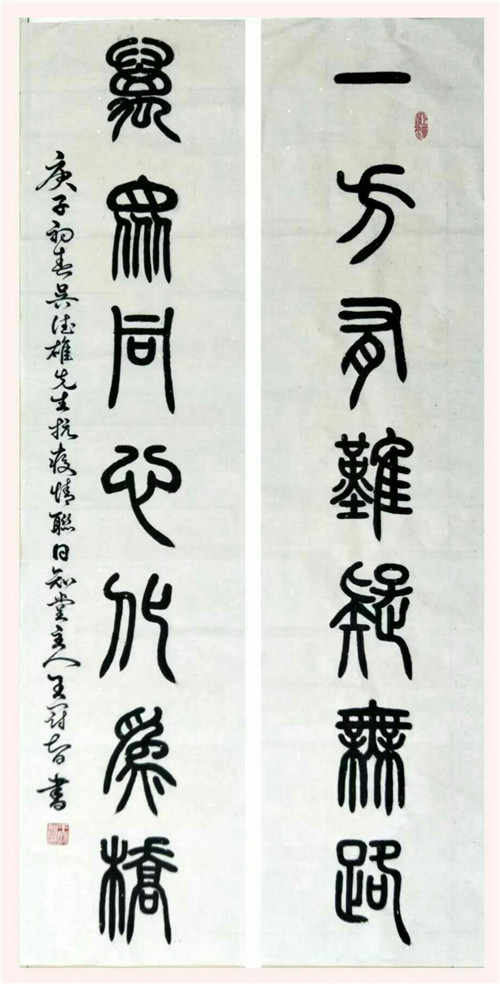 一方有難疑無路
萬眾同心化為橋
庚子初春吳德雄先生抗疫情聯日知堂主人王冠智書